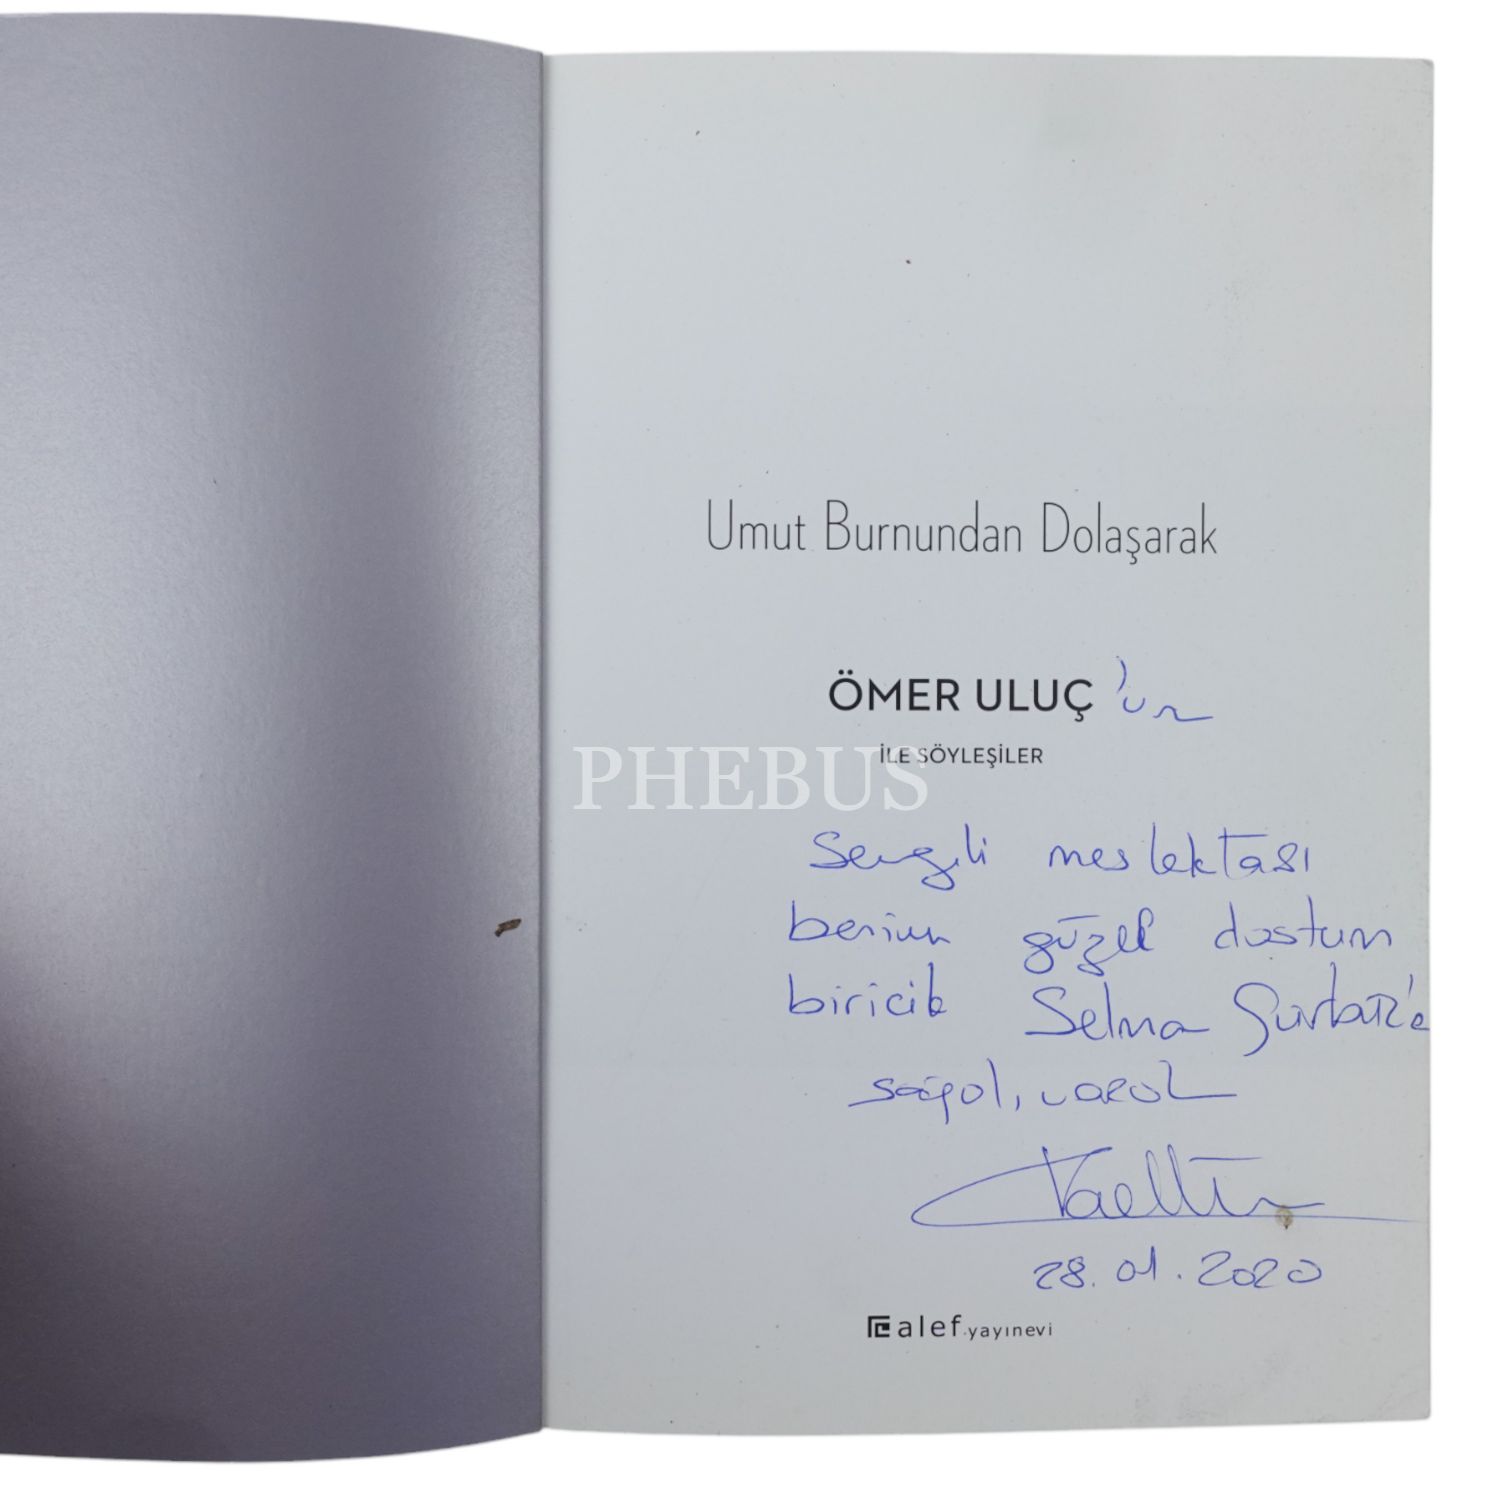 Umut Burnundan Dolaşarak
ÖMER ULUÇ 'un
İLE SÖYLEŞİLER
PHEBUS
Sevgili meslektası
benim güzel dostum
biricik Selma Gürbüz'e
sağol, varol
28.01.2020
alef.yayınevi